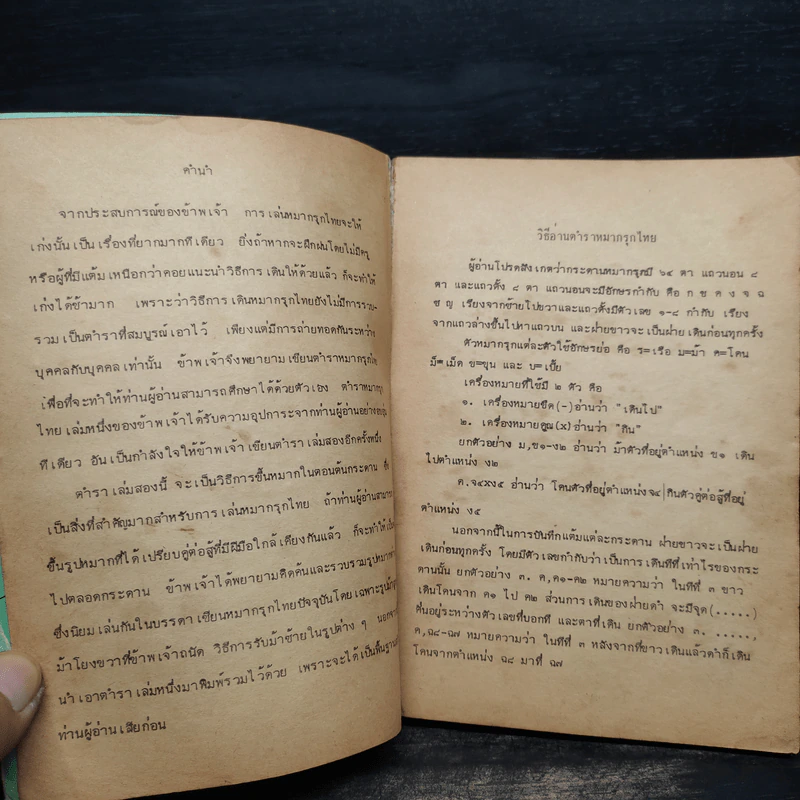 คำนำ
จากประสบการณ์ของข้าพเจ้า การเล่นหมากรุกไทยจะให้
เก่งนั้นเป็นเรื่องที่ยากมากทีเดียว ยิ่งถ้าหากจะฝึกฝนโดยไม่มีครู
หรือผู้ที่มีแต้มเหนือกว่าคอยแนะนำวิธีการเดินให้ด้วยแล้ว ก็จะทำให้
เก่งได้ช้ามาก เพราะว่าวิธีการเดินหมากรุกไทยยังไม่มีการรวบ-
รวมเป็นตำราที่สมบูรณ์เอาไว้ เพียงแต่มีการถ่ายทอดกันระหว่าง
บุคคลกับบุคคลเท่านั้น ข้าพเจ้าจึงพยายามเขียนตำราหมากรุกไทย
เพื่อที่จะทำให้ท่านผู้อ่านสามารถศึกษาได้ด้วยตัวเอง ตำราหมากรุก
ไทยเล่มหนึ่งของข้าพเจ้าได้รับความอุปการะจากท่านผู้อ่านอย่าง
ทีเดียว อันเป็นกำลังใจให้ข้าพเจ้าเขียนตำราเล่มสองอีกครั้งหนึ่ง
ตำราเล่มสองนี้ จะเป็นวิธีการขึ้นหมากในตอนต้นกระดาน ซึ่ง
เป็นสิ่งที่สำคัญมากสำหรับการเล่นหมากรุกไทย ถ้าท่านผู้อ่านสามารถ
ขึ้นรูปหมากที่ได้เปรียบคู่ต่อสู้ที่มีฝีมือใกล้เคียงกันแล้ว ก็จะทำให้
ไปตลอดกระดาน ข้าพเจ้าได้พยายามคิดค้นและรวบรวมรูปหมาก
ซึ่งนิยมเล่นกันในบรรดาเซียนหมากรุกไทยปัจจุบันโดยเฉพาะรูปม้า
ม้าโยงขวาที่ข้าพเจ้าถนัด วิธีการรับม้าซ้ายในรูปต่าง ๆ นอกจาก
นำเอาตำราเล่มหนึ่งมาพิมพ์รวมไว้ด้วย เพราะจะได้เป็นพื้นฐาน
ท่านผู้อ่านเสียก่อน
วิธีอ่านตำราหมากรุกไทย
ผู้อ่านโปรดสังเกตว่ากระดานหมากรุกมี ๖๔ ตา แถวนอน ๘
ตา และแถวตั้ง ๘ ตา แถวนอนจะมีอักษรกำกับ คือ ก ข ค ง จ ฉ
ช ญ เรียงจากซ้ายไปขวาและแถวตั้งมีตัวเลข ๑-๘ กำกับ เรียง
จากแถวล่างขึ้นไปหาแถวบน และฝ่ายขาวจะเป็นฝ่ายเดินก่อนทุกครั้ง
ตัวหมากรุกแต่ละตัวใช้อักษรย่อ คือ ร=เรือ ม=ม้า ค=โคน
ม็=เม็ด ข=ขุน และ บ=เบี้ย
เครื่องหมายที่ใช้มี ๒ ตัว คือ
๑. เครื่องหมายขีด(-)อ่านว่า "เดินไป"
๒. เครื่องหมายคูณ(x)อ่านว่า "กิน"
ยกตัวอย่าง ม,ข๑-ง๒ อ่านว่า ม้าตัวที่อยู่ตำแหน่ง ข๑ เดิน
ไปตำแหน่ง ง๒
ค.จ๔xง๕ อ่านว่า โคนตัวที่อยู่ตำแหน่งจ๔ กินตัวคู่ต่อสู้ที่อยู่
ตำแหน่ง ง๕
นอกจากนี้ในการบันทึกแต้มแต่ละกระดาน ฝ่ายขาวจะเป็นฝ่าย
เดินก่อนทุกครั้ง โดยมีตัวเลขกำกับว่าเป็นการเดินทีที่เท่าไรของกระ
ดานนั้น ยกตัวอย่าง ๓. ค,ค๑-ค๒ หมายความว่า ในทีที่ ๓ ขาว
เดินโคนจาก ค๑ ไป ค๒ ส่วนการเดินของฝ่ายดำ จะมีจุด(.....)
คั่นอยู่ระหว่างตัวเลขที่บอกที และตาที่เดิน ยกตัวอย่าง ๓. .....,
ค,ฉ๘-ฉ๗ หมายความว่า ในทีที่ ๓ หลังจากที่ขาวเดินแล้วดำก็เดิน
โคนจากตำแหน่ง ฉ๘ มาที่ ฉ๗